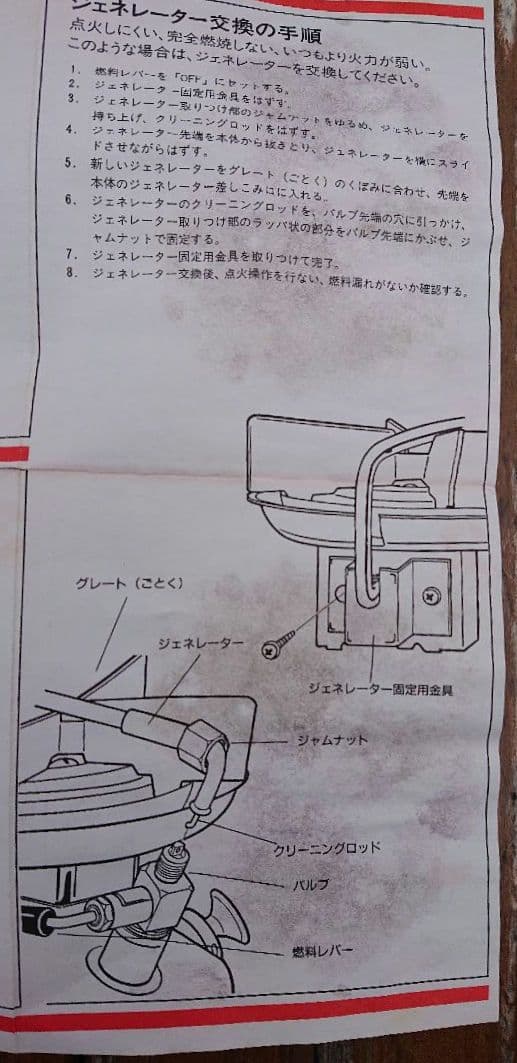 ジェネレーター交換の手順
点火しにくい、完全燃焼しない、いつもより火力が弱い。
このような場合は、ジェネレーターを交換してください。
1. 燃料レバーを「OFF」にセットする。
2. ジェネレーター固定用金具をはずす。
3. ジェネレーター取りつけ部のジャムナットをゆるめ、ジェネレーターを
持ち上げ、クリーニングロッドをはずす。
4. ジェネレーター先端を本体から抜きとり、ジェネレーターを横にスライ
ドさせながらはずす。
5. 新しいジェネレーターをグレート（ごとく）のくぼみに合わせ、先端を
本体のジェネレーター差しこみ口に入れる。
6. ジェネレーターのクリーニングロッドを、バルブ先端の穴に引っかけ、
ジェネレーター取りつけ部のラッパ状の部分をバルブ先端にかぶせ、ジ
ャムナットで固定する。
7. ジェネレーター固定用金具を取りつけて完了。
8. ジェネレーター交換後、点火操作を行ない、燃料漏れがないか確認する。
グレート（ごとく）
ジェネレーター
ジェネレーター固定用金具
ジャムナット
クリーニングロッド
バルブ
燃料レバー